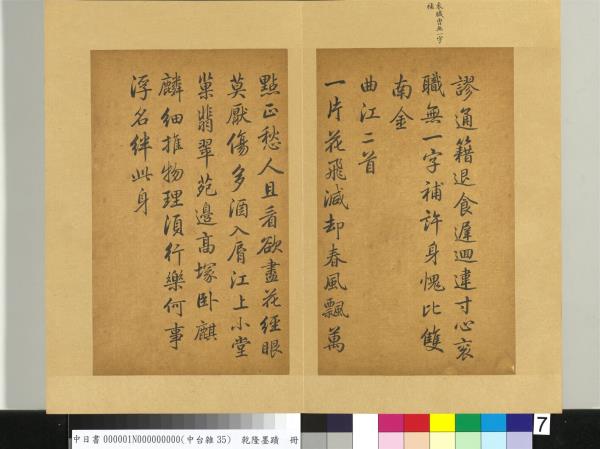 衮職曾無一字
補
謬通籍退食遲迴違寸心衮
職無一字補許身愧比雙
南金
曲江二首
一片花飛減却春風飄萬
點正愁人且看欲盡花經眼
莫厭傷多酒入脣江上小堂
巢翡翠苑邊高塚臥麒
麟細推物理須行樂何事
浮名絆此身
中日書 000001N000000000(中台雜 35) 乾隆墨蹟 冊
7